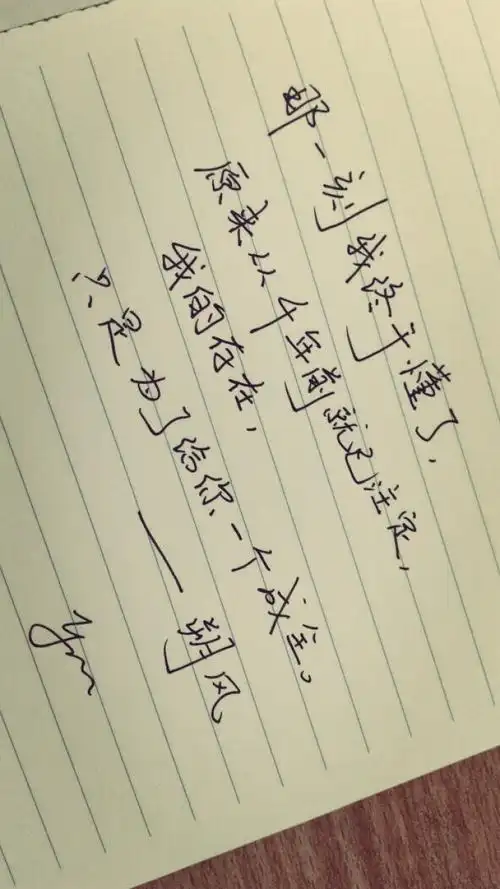 那一刻我终于懂了，
原来从千年前就已注定，
我的存在，
只是为了给你一个成全。
——朔风
Ym